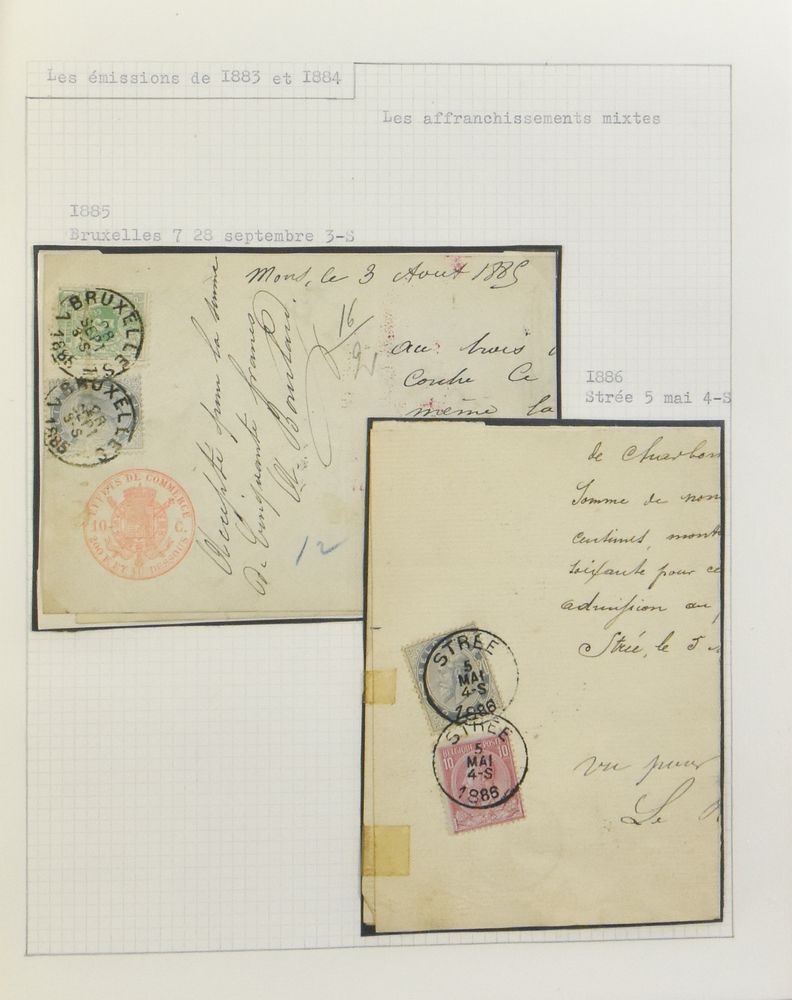 Les émissions de I883 et I884
Les affranchissements mixtes
I885
Bruxelles 7 28 septembre 3-S
Mons, le 3 Aout 1885
au trois
Contre Ce
même la
Accepté pour la somme
De Cinquante francs
16
12
BRUXELLES
28
SEPT
3-S
1885
BRUXELLES
28
SEPT
3-S
1885
EFFETS DE COMMERCE
10 C.
200 F. ET AU DESSOUS
I886
Strée 5 mai 4-S
de Charbon
Somme de
centimes, mont
soixante pour ce
admission au
Strée, le 5
vu pour
Le
STRÉE
5
MAI
4-S
1886
STRÉE
5
MAI
4-S
1886
BELGIQUE POSTES
10 10